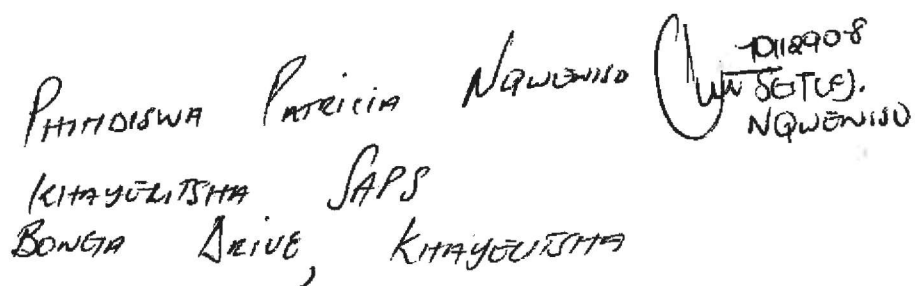 PHINDISWA PATRICIA NQWENISO
7011290-8
SGT(LE).
NQWENISO
KHAYELITSHA SAPS
BONGA DRIVE, KHAYELITSHA